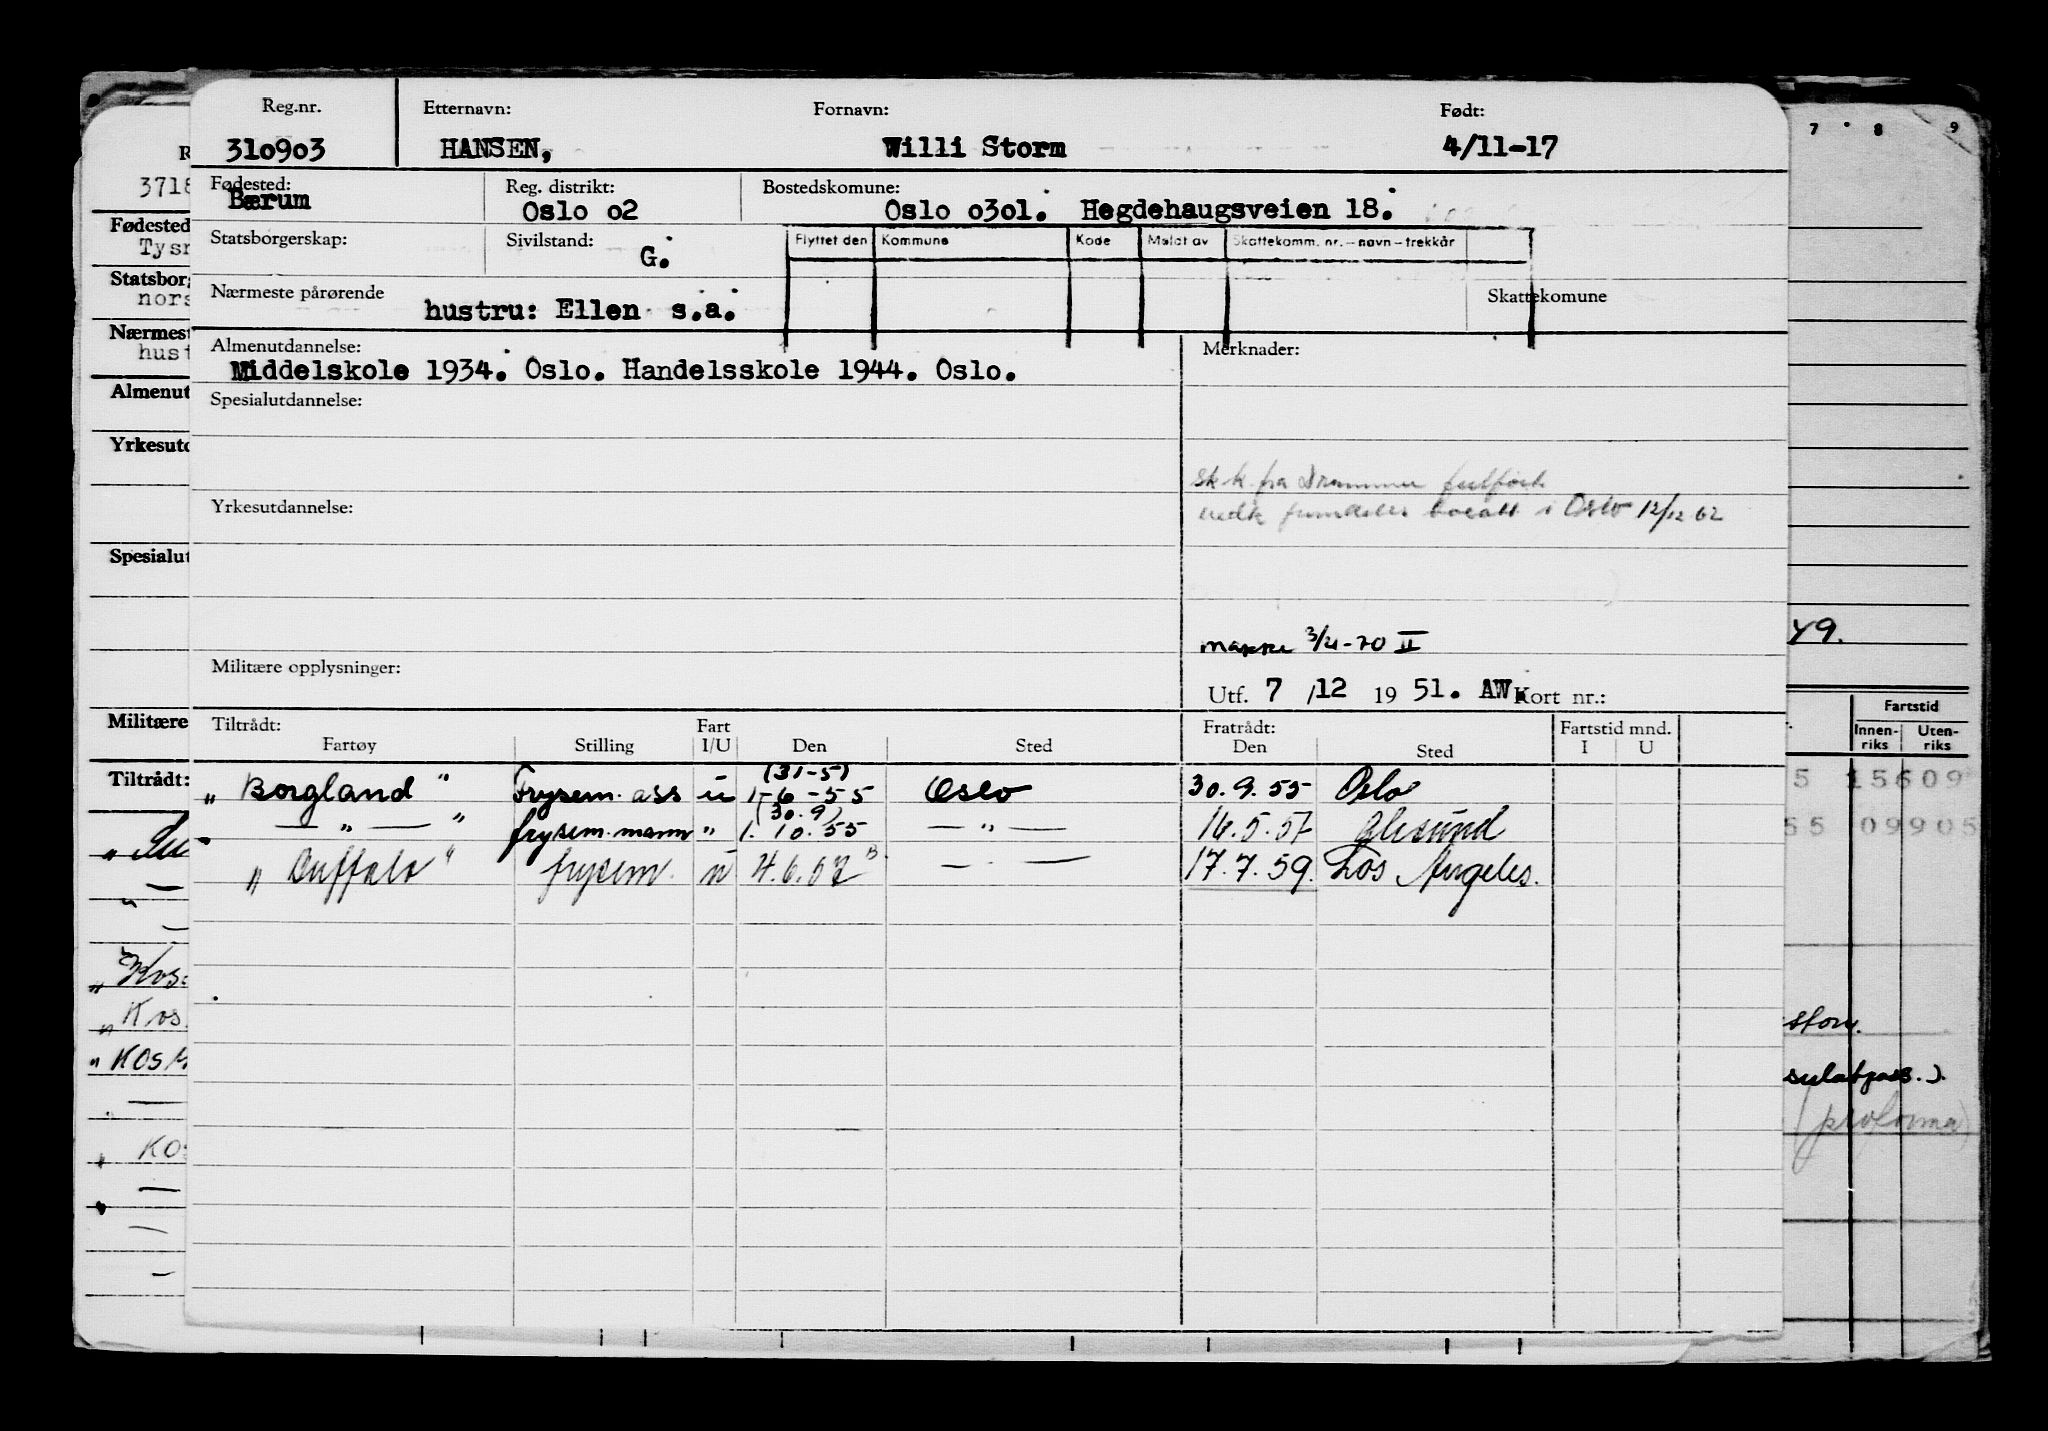 Reg.nr. Etternavn: Fornavn: Født:
310903 HANSEN, Willi Storm 4/11-17
Fødested: Reg. distrikt: Bostedskomune:
Bærum Oslo o2 Oslo o3o1. Hegdehaugsveien 18.
Statsborgerskap: Sivilstand: G. Flyttet den Kommune Kode Meldt av Skattekomm. nr. – navn – trekkår
Nærmeste pårørende hustru: Ellen s.a. Skattekomune
Almenutdannelse: Merknader:
Middelskole 1934. Oslo. Handelsskole 1944. Oslo.
Spesialutdannelse:
sk.k. fra Drammen
i Oslo 12/12 62
Yrkesutdannelse:
3/4-70 II
Militære opplysninger:
Utf. 7 /12 19 51. AW. Kort nr.:
Tiltrådt: Fart Fratrådt: Fartstid mnd.
Fartøy Stilling I/U Den Sted Den Sted I U
(31-5)
„ Borgland " Frysem. ass u 1-6-55 Oslo 30.9.55 Oslo
(30.9)
— „ — " frysem. mann " 1.10.55 — „ — 16.5.57 Ålesund
„ Buffalo " frysem. u 4.6.57 — „ — 17.7.59. Los Angeles.
R
3718
Fødested
Tysn
Statsborg
nors
Nærmest
hust
Almenut
Yrkesutd
Spesialut
Militære
Tiltrådt:
„ Kos
„ Kos
" KOS
„ KO
7 8 9
49.
Fartstid
Innen-riks Uten-riks
5 15609
55 09905
ston.
sulatpass.).
(proforma)